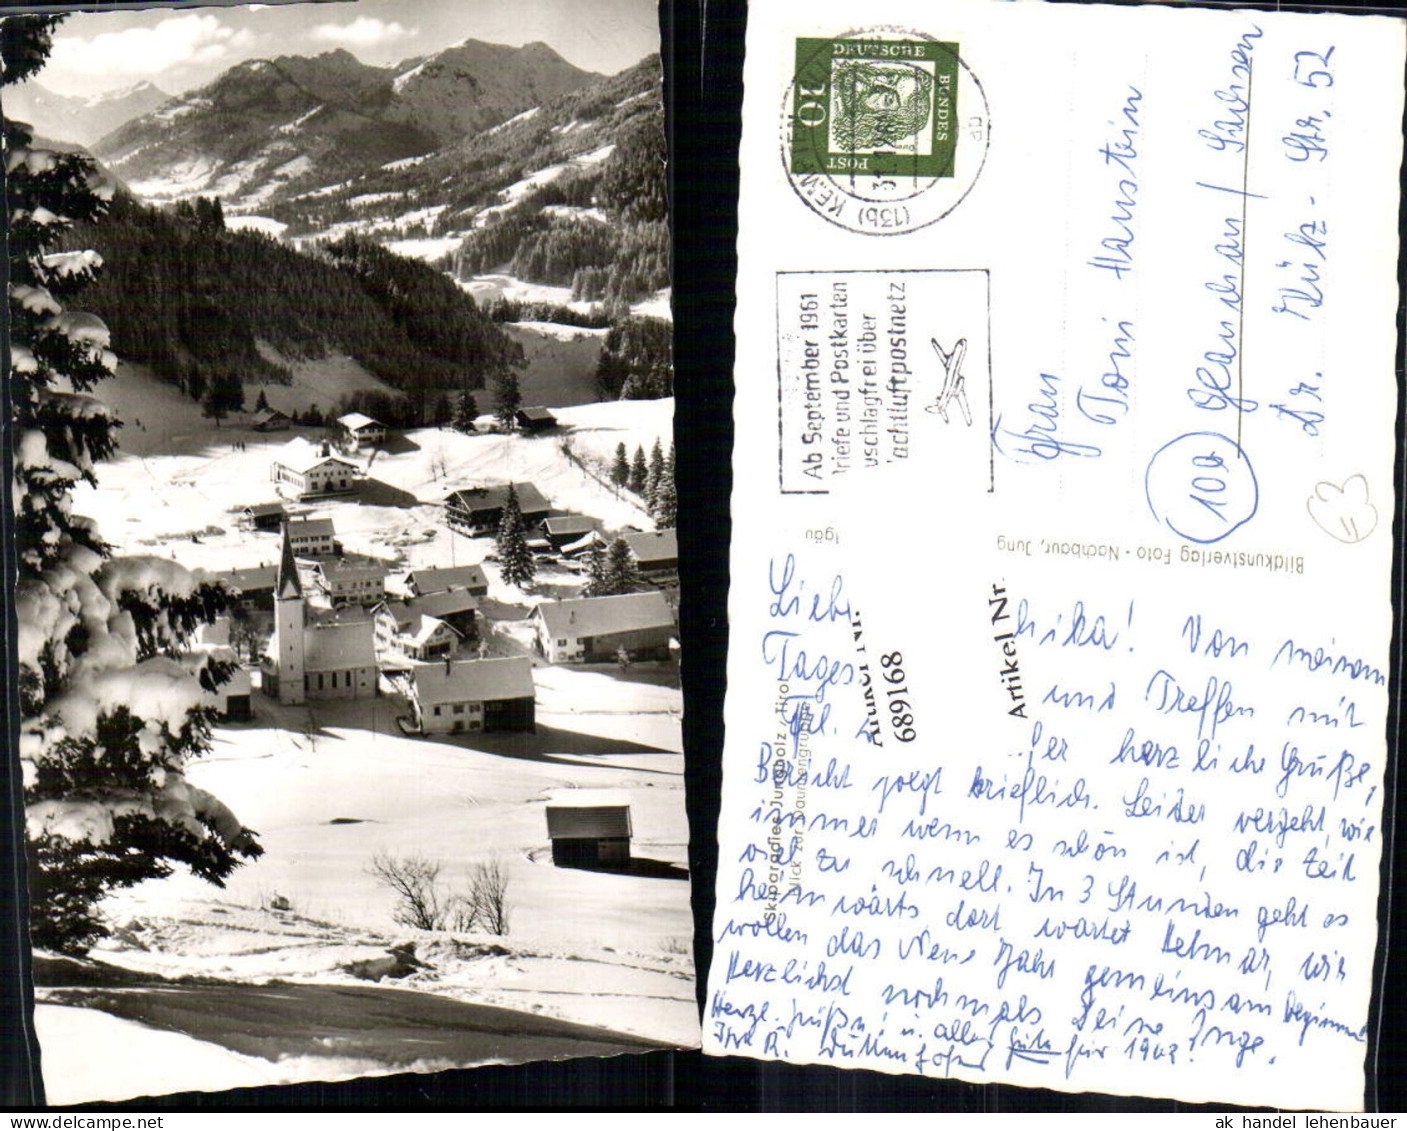 DEUTSCHE
BUNDES
POST
10
(13b) KEMPTEN
Ab September 1961
riefe und Postkarten
uschlagfrei über
achtluftpostnetz
Frau
Toni Haustein
(10b) Glauchau / Sachsen
Dr. Külz - Str. 52
lgäu
Bildkunstverlag Foto - Nachbaur, Jung
Skiparadies Jungholz / Tirol
Blick zur Daumengruppe
Artikel Nr.
689168
Artikel Nr.
Lieb hika! Von meinem
Tages und Treffen mit
Frl. her herzliche Grüße,
Bericht folgt brieflich. Leider vergeht, wie
immer wenn es schön ist, die Zeit
viel zu schnell. In 3 Stunden geht es
heimwärts dort wartet Helmar, wir
wollen das Neue Jahr gemeinsam beginnen
Herzlichst nochmals Deine Inge.
Herzl. Grüße u. alles Gute für 1962!
Ihr R.
ak handel lehenbauer